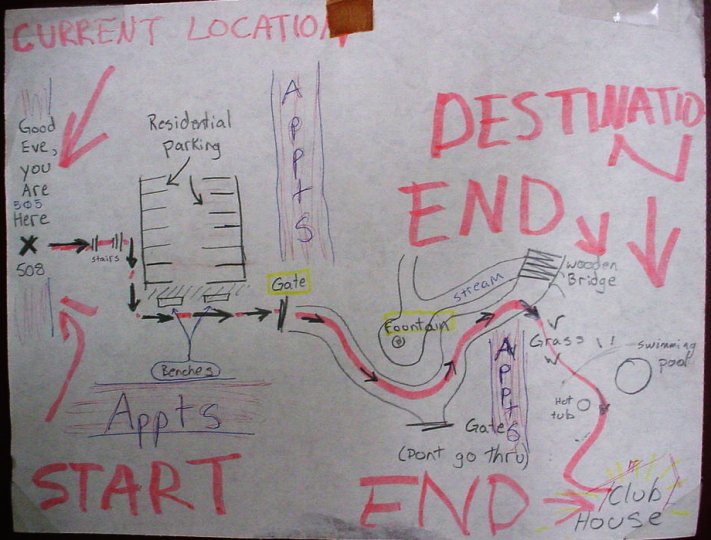 CURRENT LOCATION
Good
Eve,
you
Are
505
Here
X
508
stairs
Residential
parking
Appts
Gate
Benches
Appts
START
DESTINATION
END
stream
wooden
Bridge
Fountain
Grass !!
swimming
pool
Hot
tub
Appts
Gate
(Dont go thru)
END
Club
House